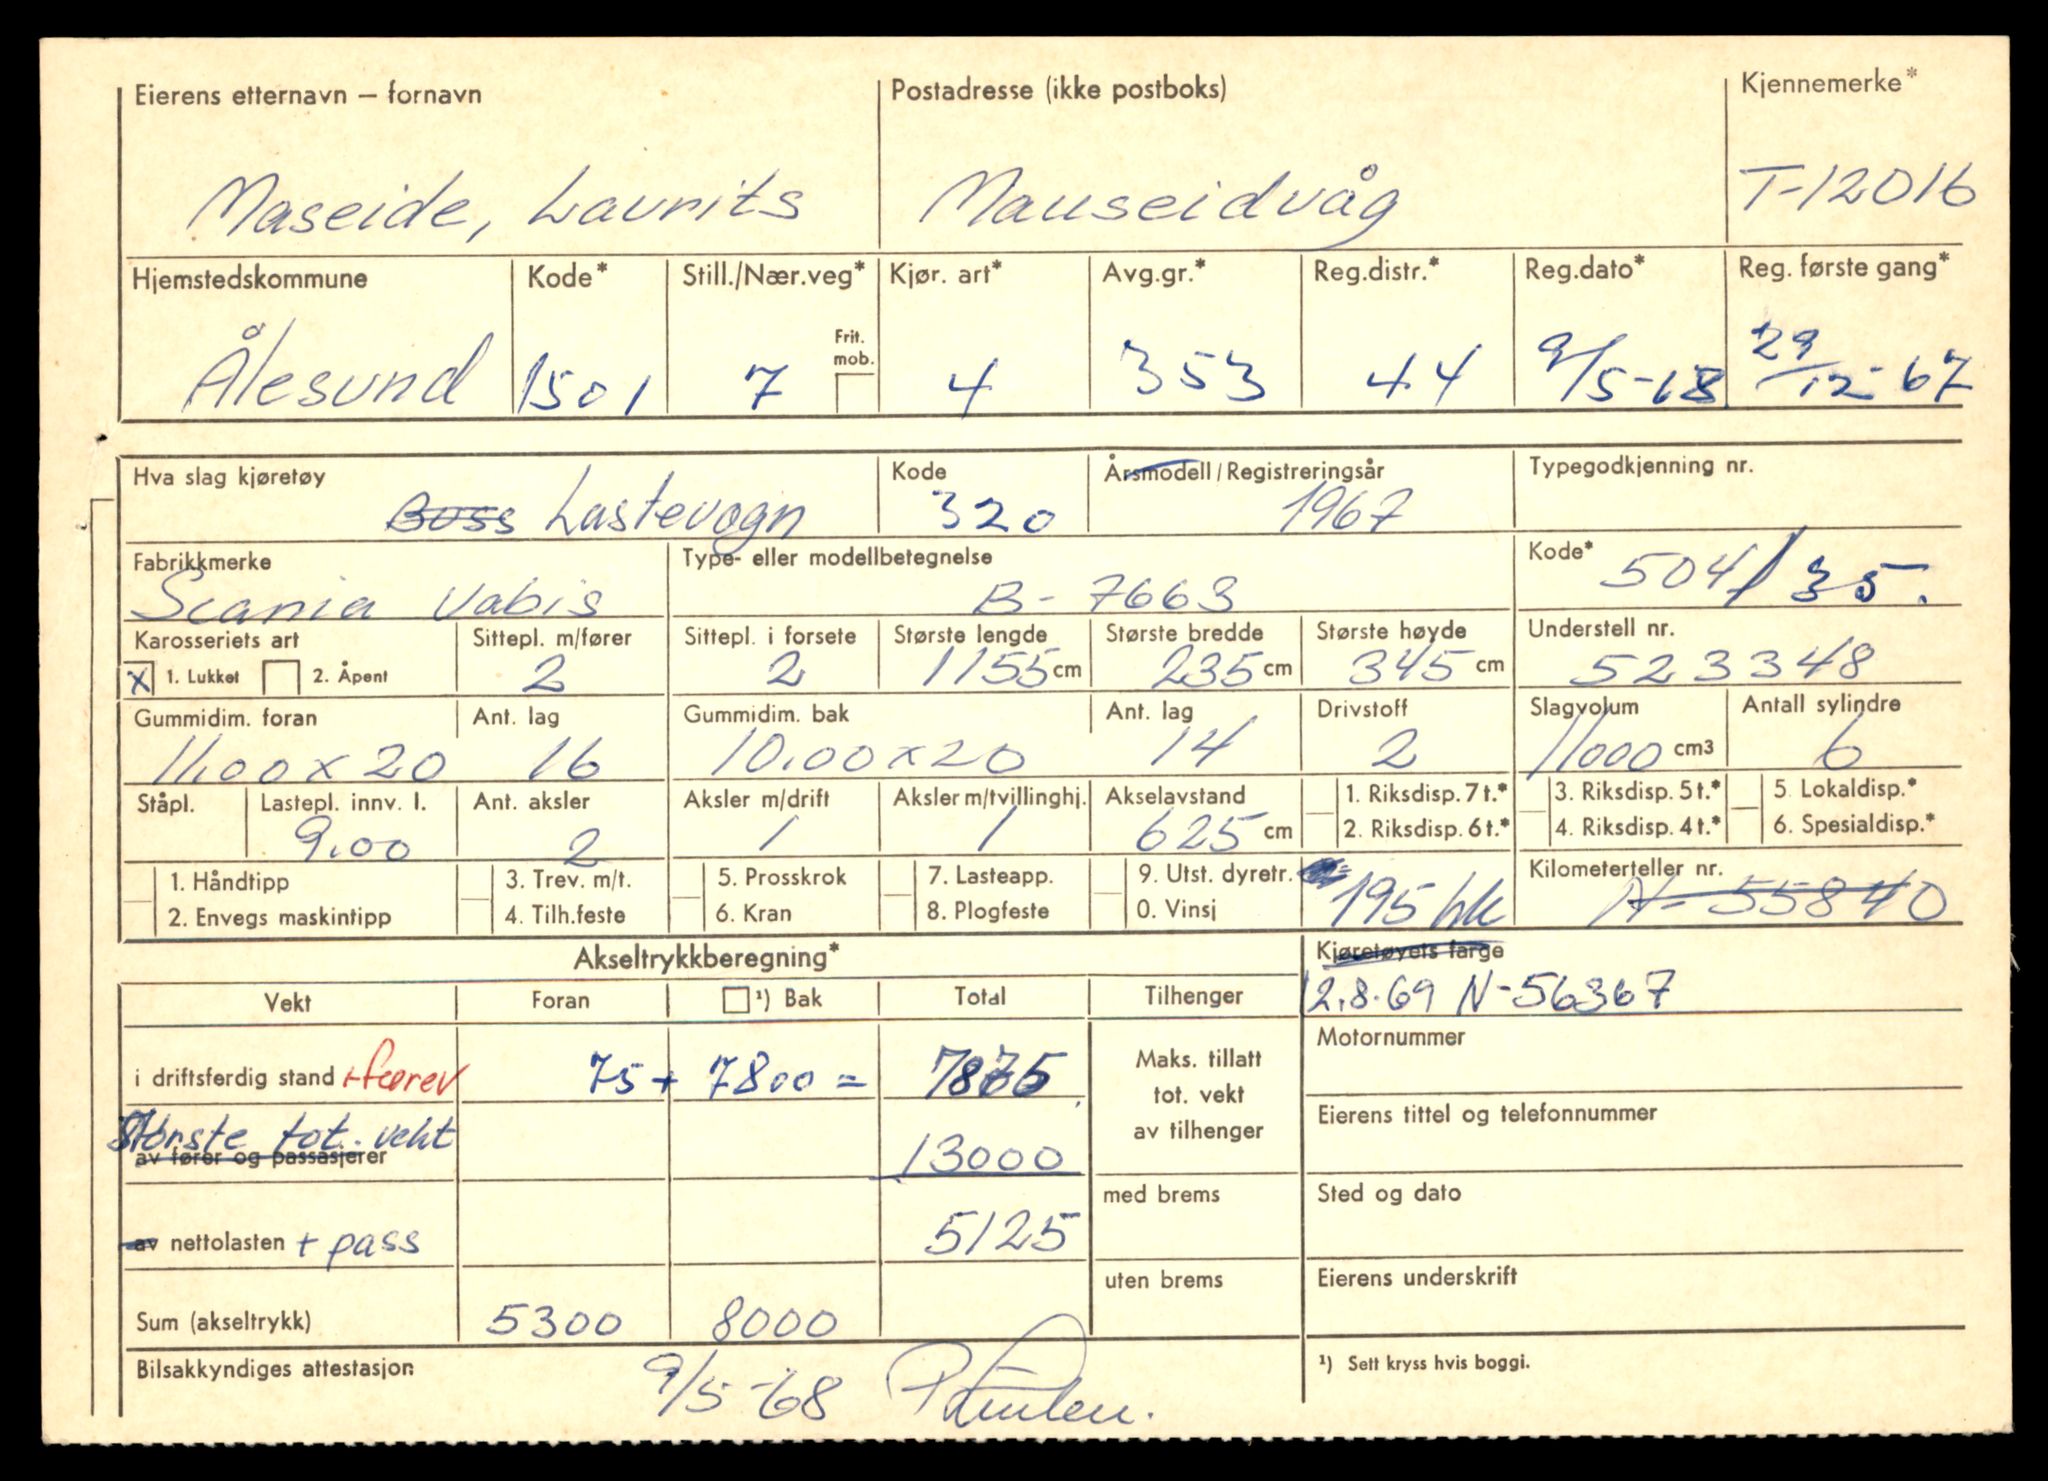 Eierens etternavn – fornavn Postadresse (ikke postboks) Kjennemerke*
Maseide, Laurits Mauseidvåg T-12016
Hjemstedskommune Kode* Still./Nær.veg* Kjør. art* Avg.gr.* Reg.distr.* Reg.dato* Reg. første gang*
Frit. mob.
Ålesund 1501 7 4 353 44 9/5-68 29/12-67
Hva slag kjøretøy Kode Årsmodell/Registreringsår Typegodkjenning nr.
Buss Lastevogn 320 1967
Fabrikkmerke Type- eller modellbetegnelse Kode*
Scania Vabis B-7663 504/35.
Karosseriets art Sittepl. m/fører Sittepl. i forsete Største lengde Største bredde Største høyde Understell nr.
X 1. Lukket 2. Åpent 2 2 1155 cm 235 cm 345 cm 523348
Gummidim. foran Ant. lag Gummidim. bak Ant. lag Drivstoff Slagvolum Antall sylindre
11.00 x 20 16 10.00 x 20 14 2 11000 cm3 6
Ståpl. Lastepl. innv. l. Ant. aksler Aksler m/drift Aksler m/tvillinghj. Akselavstand 1. Riksdisp. 7 t.* 3. Riksdisp. 5 t.* 5 Lokaldisp.*
9.00 2 1 1 625 cm 2. Riksdisp. 6 t.* 4. Riksdisp. 4 t.* 6. Spesialdisp.*
1. Håndtipp 3. Trev. m/t. 5. Prosskrok 7. Lasteapp. 9. Utst. dyretr. Kilometerteller nr.
2. Envegs maskintipp 4. Tilh.feste 6. Kran 8. Plogfeste 0. Vinsj 195 hk A-55840
Akseltrykkberegning* Kjøretøyets farge
Vekt Foran ¹) Bak Total Tilhenger 12.8.69 N-56367
i driftsferdig stand + fører 75 + 7800 = 7875 Maks. tillatt tot. vekt av tilhenger Motornummer
Største tot. vekt
av fører og passasjerer 13000 Eierens tittel og telefonnummer
av nettolasten + pass 5125 med brems Sted og dato
uten brems Eierens underskrift
Sum (akseltrykk) 5300 8000
Bilsakkyndiges attestasjon 9/5-68 ¹) Sett kryss hvis boggi.